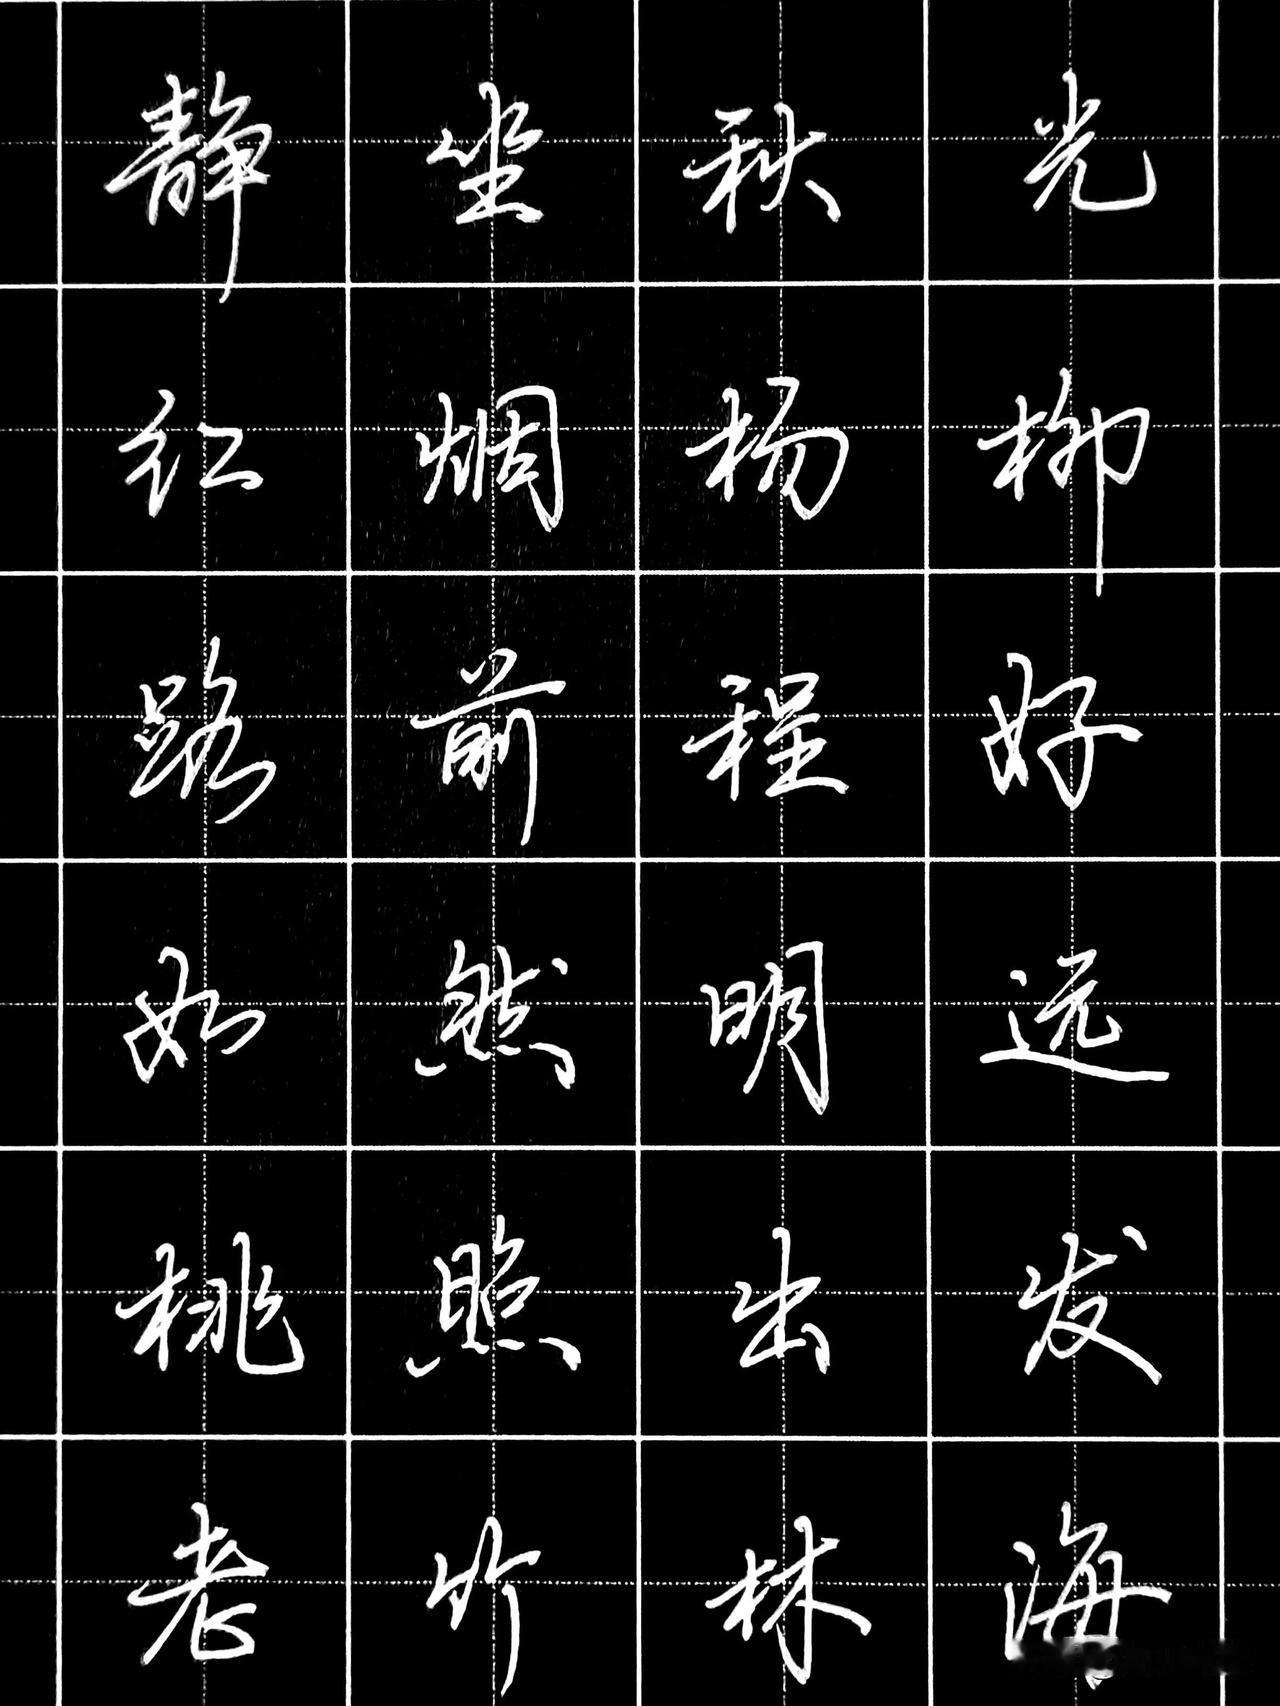 静坐秋光
红烟杨柳
路前程好
如然明远
桃照出发
老竹林海